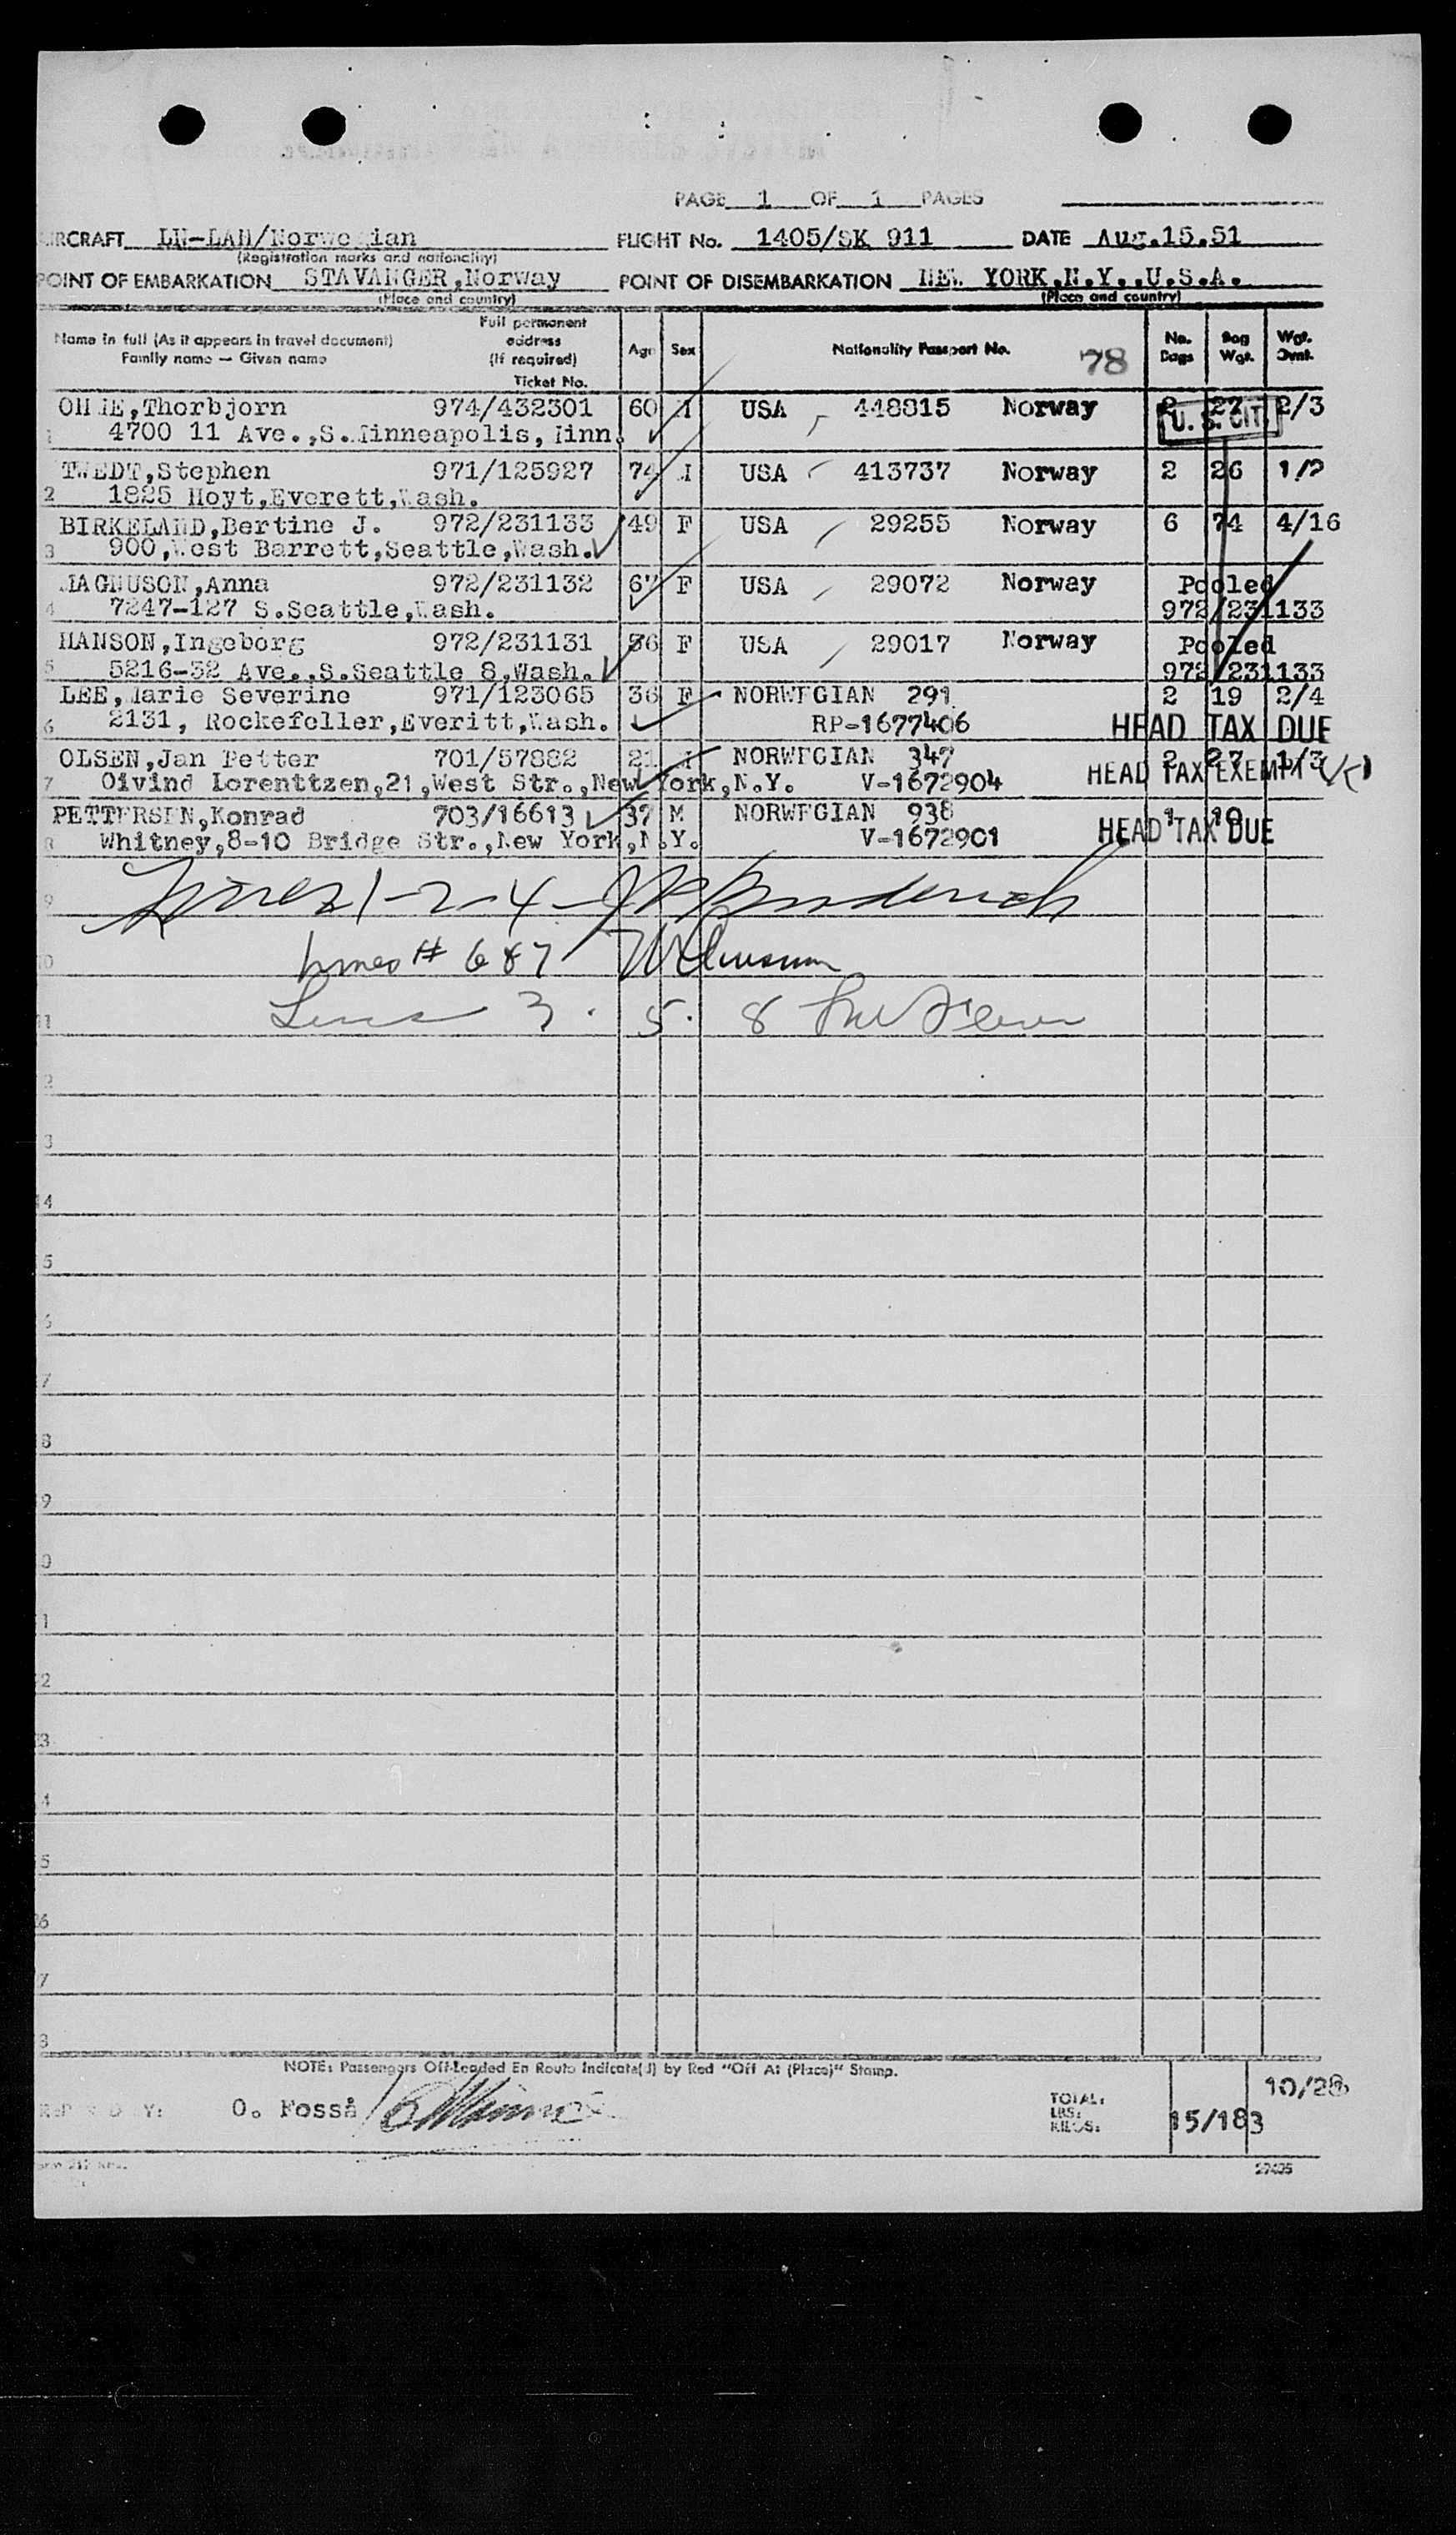 PAGE 1 OF 1 PAGES
AIRCRAFT LN-LAM/Norwegian FLIGHT No. 1405/SK 911 DATE Aug.15.51
(Registration marks and nationality)
POINT OF EMBARKATION STAVANGER,Norway POINT OF DISEMBARKATION NEW YORK,N.Y.,U.S.A.
(Place and country) (Place and country)
Name in full (As it appears in travel document) Family name — Given name Full permanent address (If required) Ticket No. Age Sex Nationality Passport No. 78 No. Bags Bag Wgt. Wgt. Ovnt.
1 OHME,Thorbjorn 974/432301 60 M USA 448815 Norway 2 27 2/3
4700 11 Ave.,S.Minneapolis,Minn. U. S. CIT.
TWEDT,Stephen 971/125927 74 M USA 413737 Norway 2 26 1/2
2 1825 Hoyt,Everett,Wash.
BIRKELAND,Bertine J. 972/231133 49 F USA 29255 Norway 6 74 4/16
3 900,West Barrett,Seattle,Wash.
MAGNUSON,Anna 972/231132 67 F USA 29072 Norway Pooled
4 7247-127 S.Seattle,Wash. 972/231133
HANSON,Ingeborg 972/231131 56 F USA 29017 Norway Pooled
5 5216-32 Ave.,S.Seattle 8,Wash. 972/231133
LEE,Marie Severine 971/123065 36 F NORWEGIAN 291 2 19 2/4
6 2131, Rockefeller,Everitt,Wash. RP-1677406 HEAD TAX DUE
OLSEN,Jan Petter 701/57882 21 M NORWEGIAN 347 2 27 1/3
7 Oivind Lorenttzen,21,West Str.,New York,N.Y. V-1672904 HEAD TAX EXEMPT
PETTERSEN,Konrad 703/16613 37 M NORWEGIAN 938 1 10
8 Whitney,8-10 Bridge Str.,New York,N.Y. V-1672901 HEAD TAX DUE
9 Lines 1-2-4-
10 Lines # 6 & 7
11 Lines 3. 5. 8
2
3
4
5
6
7
8
9
0
1
2
3
4
5
6
7
8
NOTE: Passengers Off-Loaded En Route Indicate(d) by Red "Off At (Place)" Stamp.
O. Fosså TOTAL: LBS: KILOS: 15/183 10/28
27435